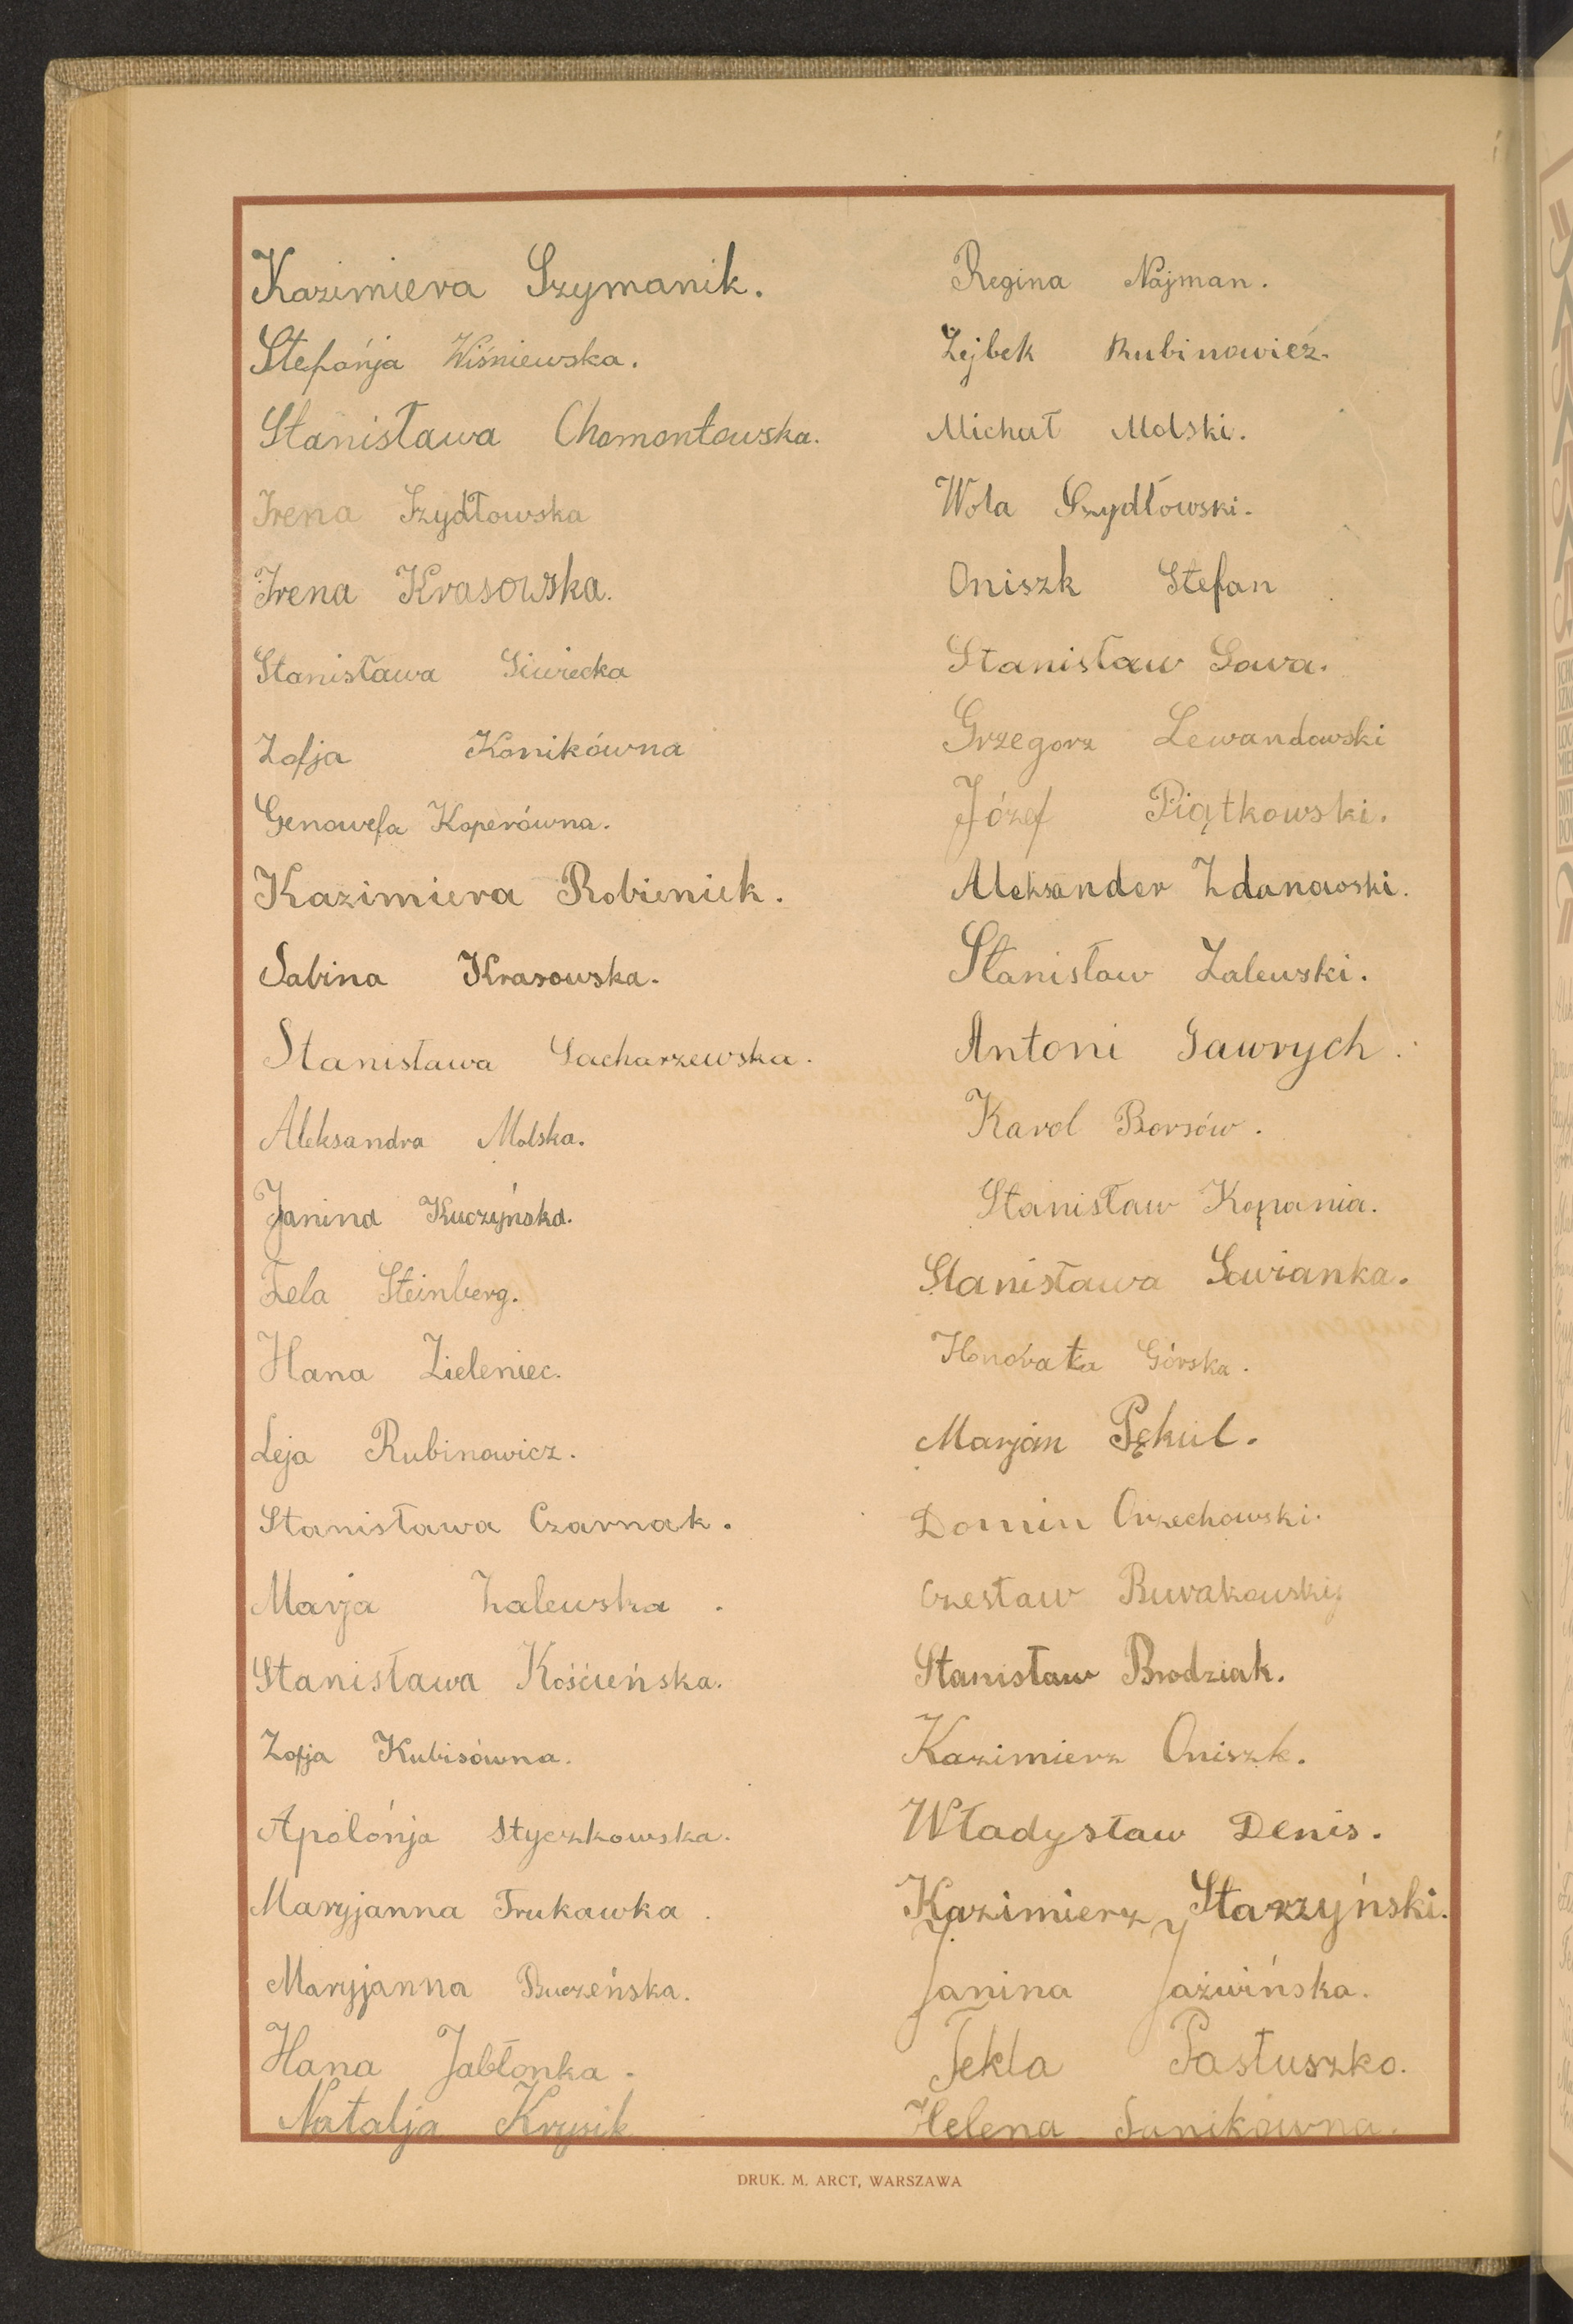 Kazimiera Szymanik.
Stefańja Wiśniewska.
Stanisława Chomontowska.
Irena Szydłowska
Irena Krasowska.
Stanisława Siwiecka
Zofja Konikówna
Genowefa Koperówna.
Kazimiera Robieniek.
Sabina Krasowska.
Stanisława Sacharzewska.
Aleksandra Molska.
Janina Kuczyńska.
Fela Steinberg.
Hana Zieleniec.
Leja Rubinowicz.
Stanisława Czarnak.
Marja Zalewska.
Stanisława Kościeńska.
Zofja Kubisówna.
Apolońja Styczkowska.
Maryjanna Trukawka.
Maryjanna Buczeńska.
Hana Jabłonka.
Natalja Krysik
Regina Najman.
Zejbek Rubinowicz.
Michał Molski.
Wola Szydłowski.
Oniszk Stefan
Stanisław Sawa.
Grzegorz Lewandowski
Józef Piątkowski.
Aleksander Zdanowski.
Stanisław Zalewski.
Antoni Gawrych.
Karol Borsów.
Stanisław Kępania.
Stanisława Sawianka.
Honorata Górska.
Marjan Pękul.
Domin Orzechowski.
Czesław Burakowski
Stanisław Brodziak.
Kazimierz Oniszk.
Władysław Denis.
Kazimierz Starzyński.
Janina Jaźwińska.
Tekla Pastuszko.
Helena Sunikówna.
DRUK. M. ARCT, WARSZAWA